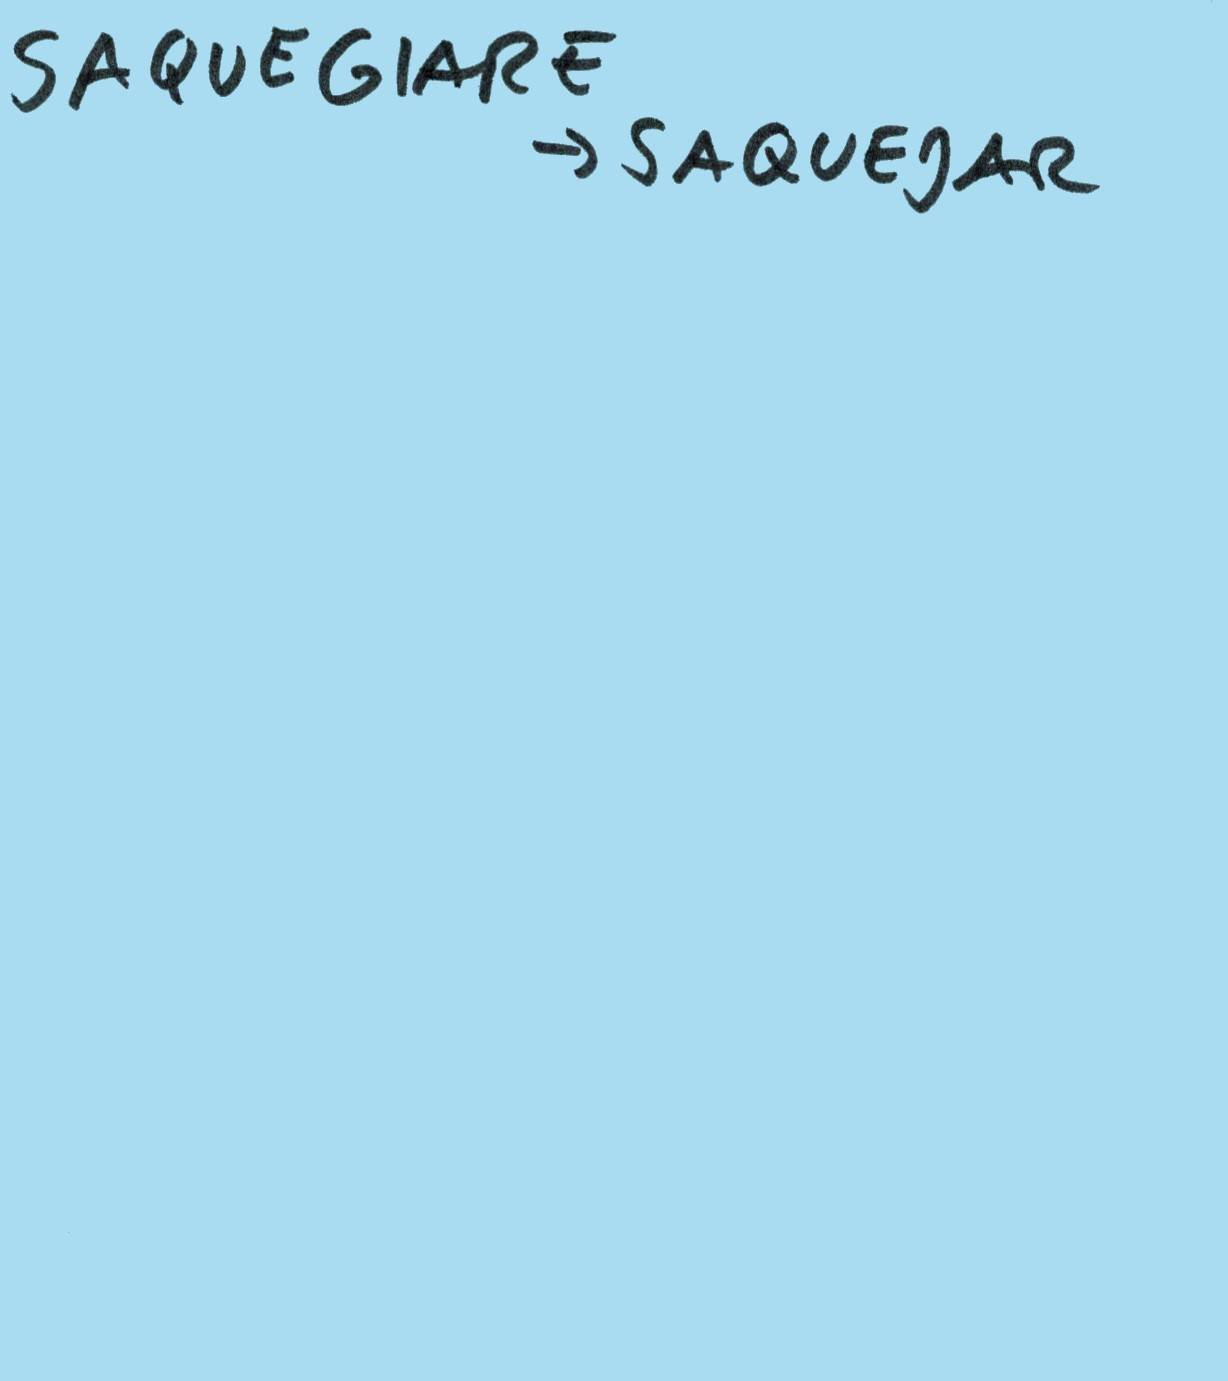 SAQUEGIARE
→ SAQUEJAR